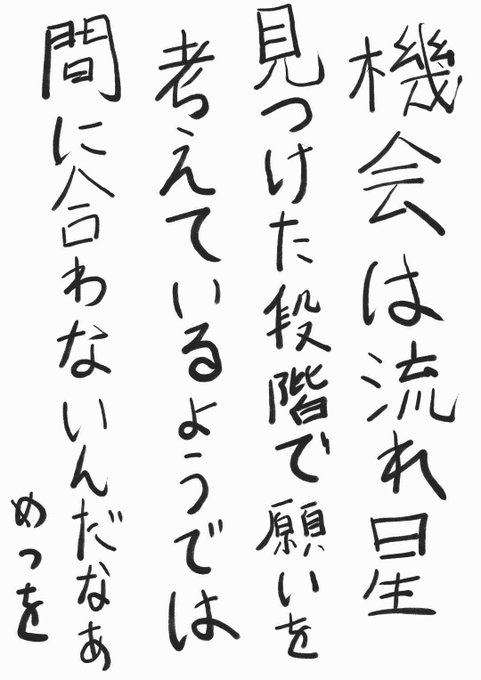 機会は流れ星
見つけた段階で願いを
考えているようでは
間に合わないんだなぁ
めっを